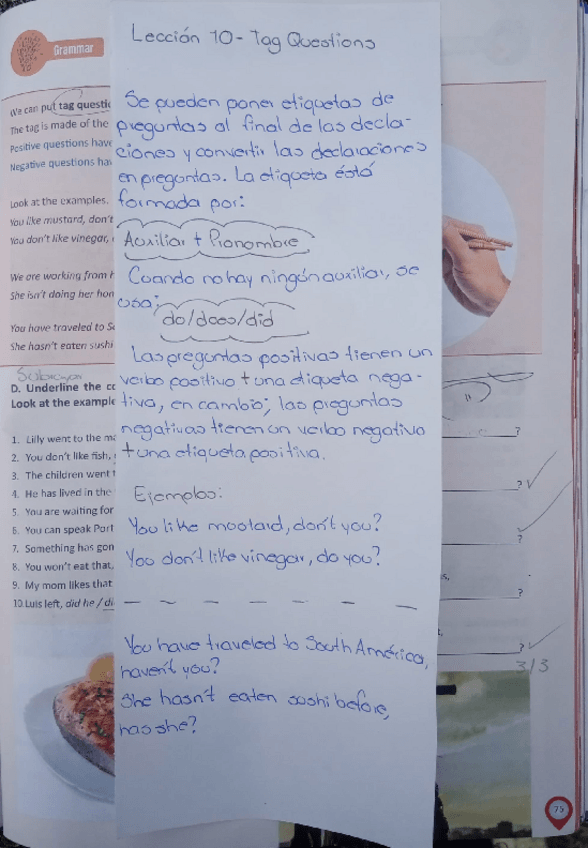 Grammar
We can put tag questi
The tag is made of the
Positive questions have
Negative questions ha
Look at the examples.
You like mustard, don't
You don't like vinegar,
We are working from h
She isn't doing her hom
You have traveled to S
She hasn't eaten sushi
Subrayar
D. Underline the co
Look at the example
1. Lilly went to the ma
2. You don't like fish,
3. The children went t
4. He has lived in the
5. You are waiting for
6. You can speak Port
7. Something has gon
8. You won't eat that,
9. My mom likes that
10. Luis left, did he / di
Lección 10 - Tag Questions
Se pueden poner etiquetas de
preguntas al final de las decla-
ciones y convertir las declaraciones
en preguntas. La etiqueta éstá
formada por:
Auxiliar + Pronombre
Cuando no hay ningún auxiliar, se
usa:
do/does/did
Las preguntas positivas tienen un
verbo positivo + una etiqueta nega-
tiva, en cambio; las preguntas
negativas tienen un verbo negativo
+ una etiqueta positiva.
Ejemplos:
You like mostard, don't you?
You don't like vinegar, do you?
You have traveled to South América,
haven't you?
She hasn't eaten sushi before,
has she?
?
?
?
s,
?
?
3/3
75